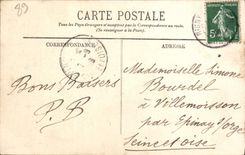 89
CARTE POSTALE
Tous les Pays étrangers n'acceptent pas la Correspondance au recto.
(Se renseigner à la Poste)
CORRESPONDANCE
ADRESSE
5
Mademoiselle Simone
Bourdel
à Villemoisson
par Epinay s/orge
Seine et oise
Bons Baisers
P.B